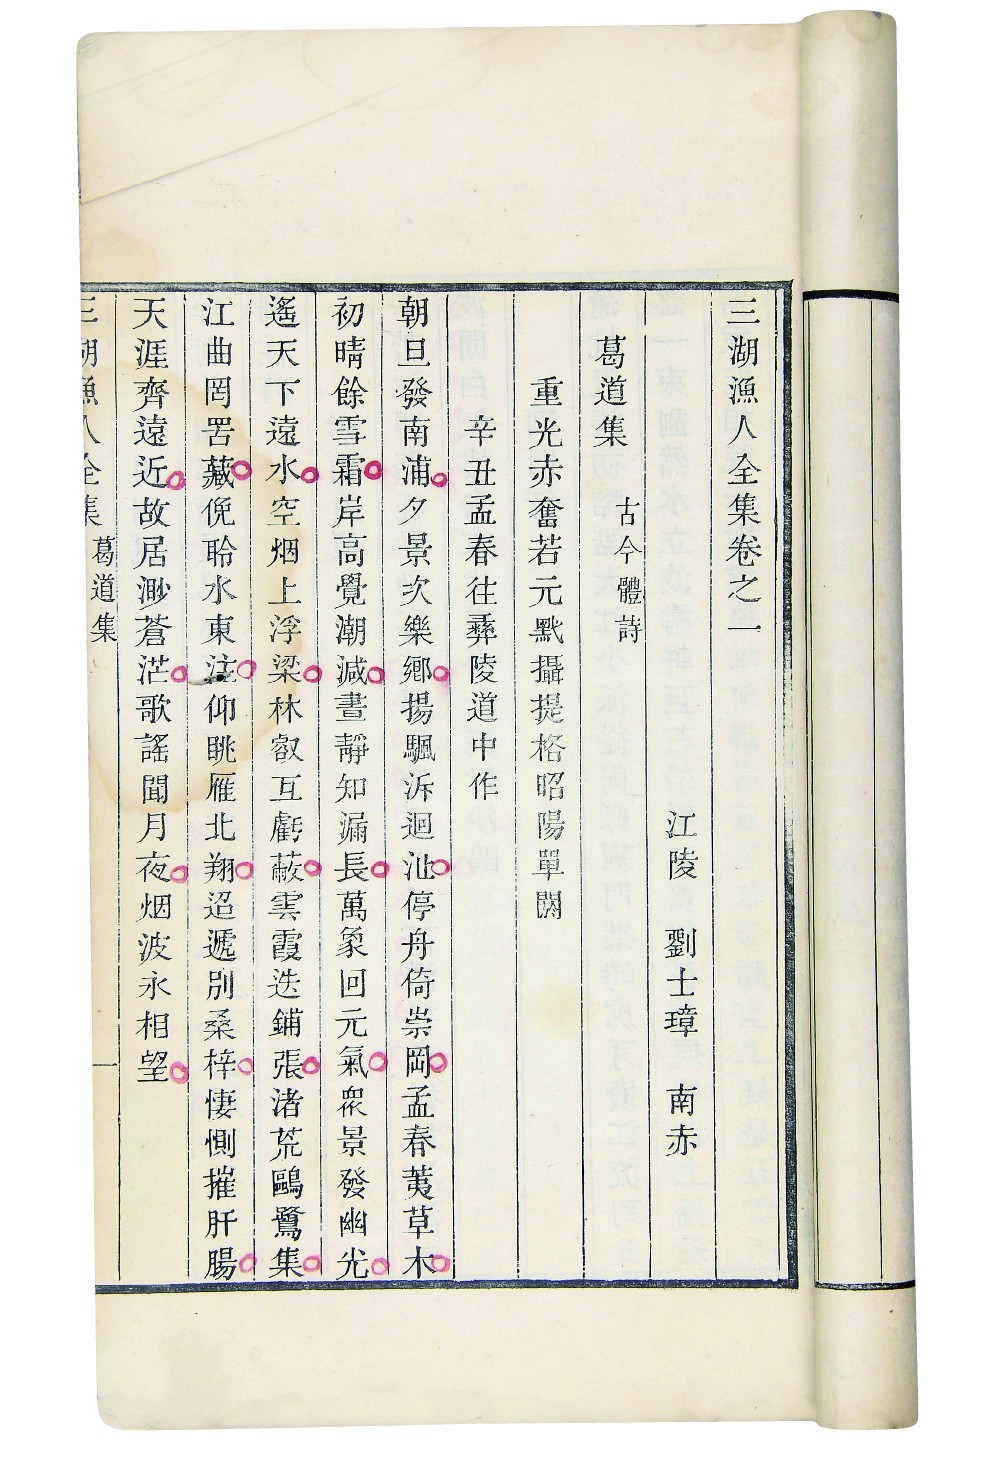 三湖漁人全集卷之一
江陵　劉士璋　南赤
葛道集
古今體詩
重光赤奮若元黓攝提格昭陽單閼
辛丑孟春往彞陵道中作
朝旦發南浦夕景次樂鄉揚颿泝迴沚停舟倚崇岡孟春荑草木
初晴餘雪霜岸高覺潮減晝靜知漏長萬象回元氣眾景發幽光
遙天下遠水空烟上浮梁林叡互虧蔽雲霞迭鋪張渚荒鷗鷺集
江曲罔罟藏俛聆水東注仰眺雁北翔迢遞別桑梓悽惻摧肝腸
天涯齊遠近故居渺蒼茫歌謠聞月夜烟波永相望
三湖漁人全集
葛道集
一